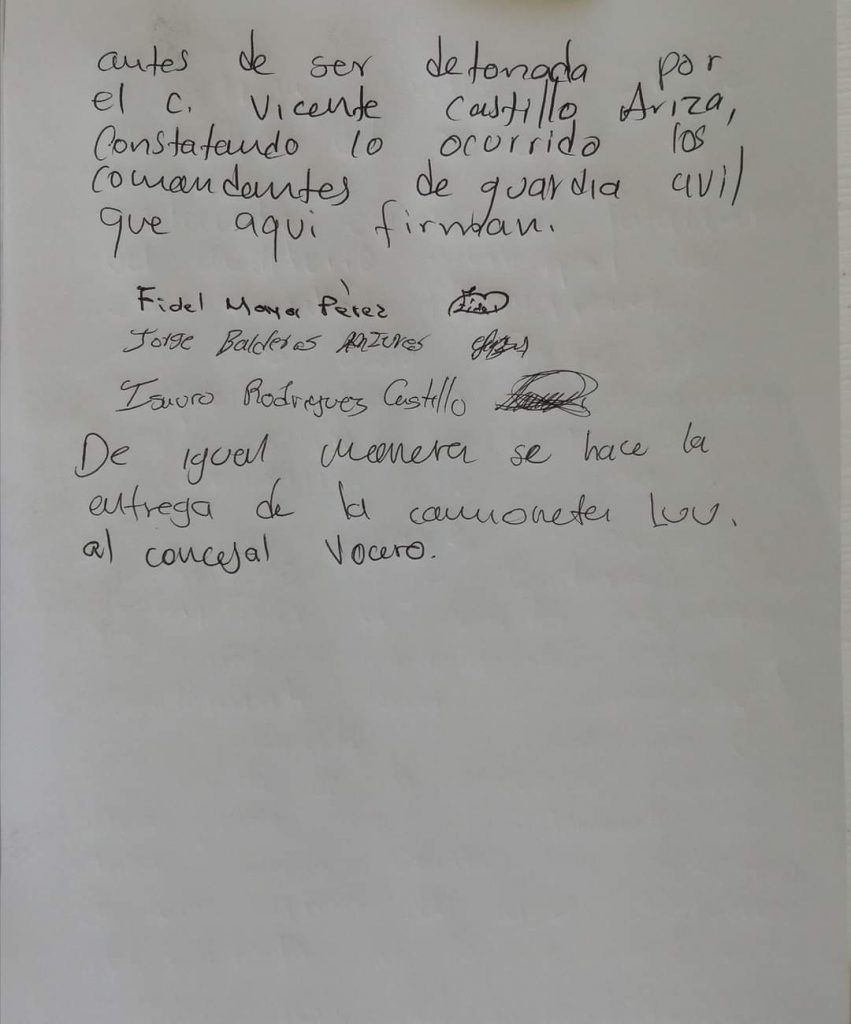 antes de ser detonada por
el c. Vicente Castillo Ariza,
Constatando lo ocurrido los
comandantes de guardia civil
que aqui firman.
Fidel Maya Pèrez
Jorge Balderas
Isauro Rodreguez Castillo
De igual manera se hace la
entrega de la camioneta Luv.
al concejal Vocero.